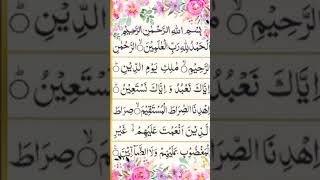 بِسْمِ اللهِ الرَّحْمٰنِ الرَّحِيْمِ
اَلْحَمْدُ لِلّٰهِ رَبِّ الْعٰلَمِيْنَ ۙ الرَّحْمٰنِ
الرَّحِيْمِ ۙ مٰلِكِ يَوْمِ الدِّيْنِ ؕ
اِيَّاكَ نَعْبُدُ وَ اِيَّاكَ نَسْتَعِيْنُ ؕ
اِهْدِنَا الصِّرَاطَ الْمُسْتَقِيْمَ ۙ صِرَاطَ
الَّذِيْنَ اَنْعَمْتَ عَلَيْهِمْ ۙ غَيْرِ
الْمَغْضُوْبِ عَلَيْهِمْ وَلَا الضَّآلِّيْنَ